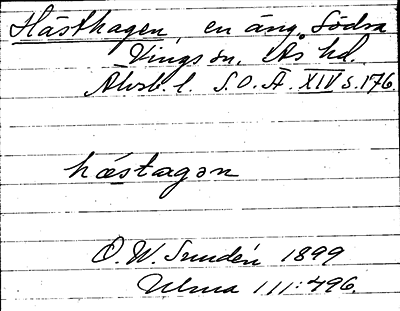 Hästhagen, en äng, Södra
Vings sn. Ås hd.
Älvsb. l. S.O.Ä. XIV s. 176.
hæstagən
O. W. Sundén 1899
Ulma 111:496.